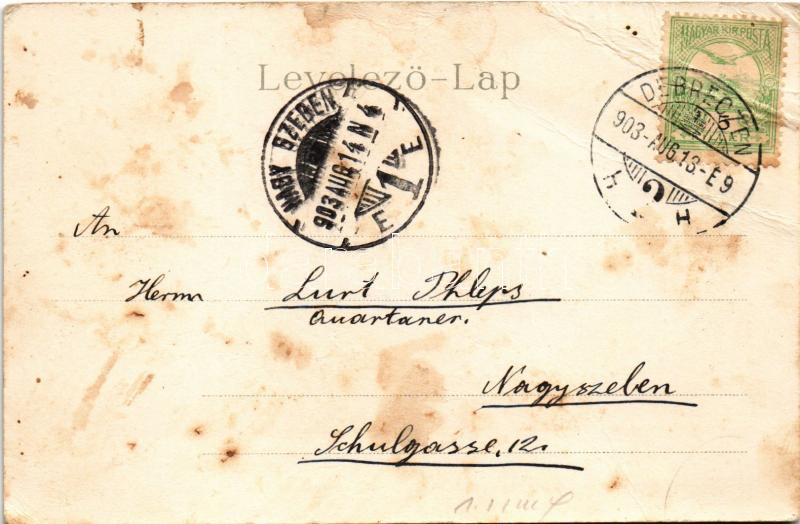 MAGYAR KIR. POSTA
Levelező-Lap
DEBRECZEN
903-AUG.13.-É9
NAGY SZEBEN
903 AUG 14 N 4
1
An
Herrn Kurt Phleps
Quartaner.
Nagyszeben
Schulgasse, 12.